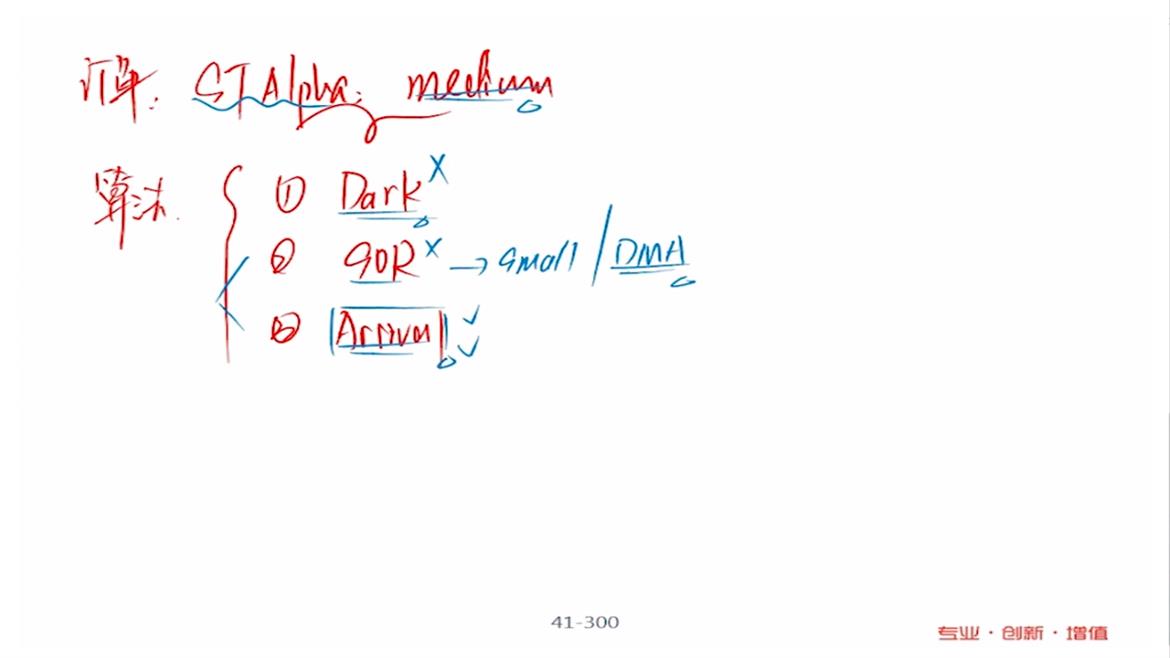 订单: ST Alpha: medium
算法. ① Dark ×
② SOR × → small / DMA
③ Arrival ✓ ✓
41-300
专业·创新·增值